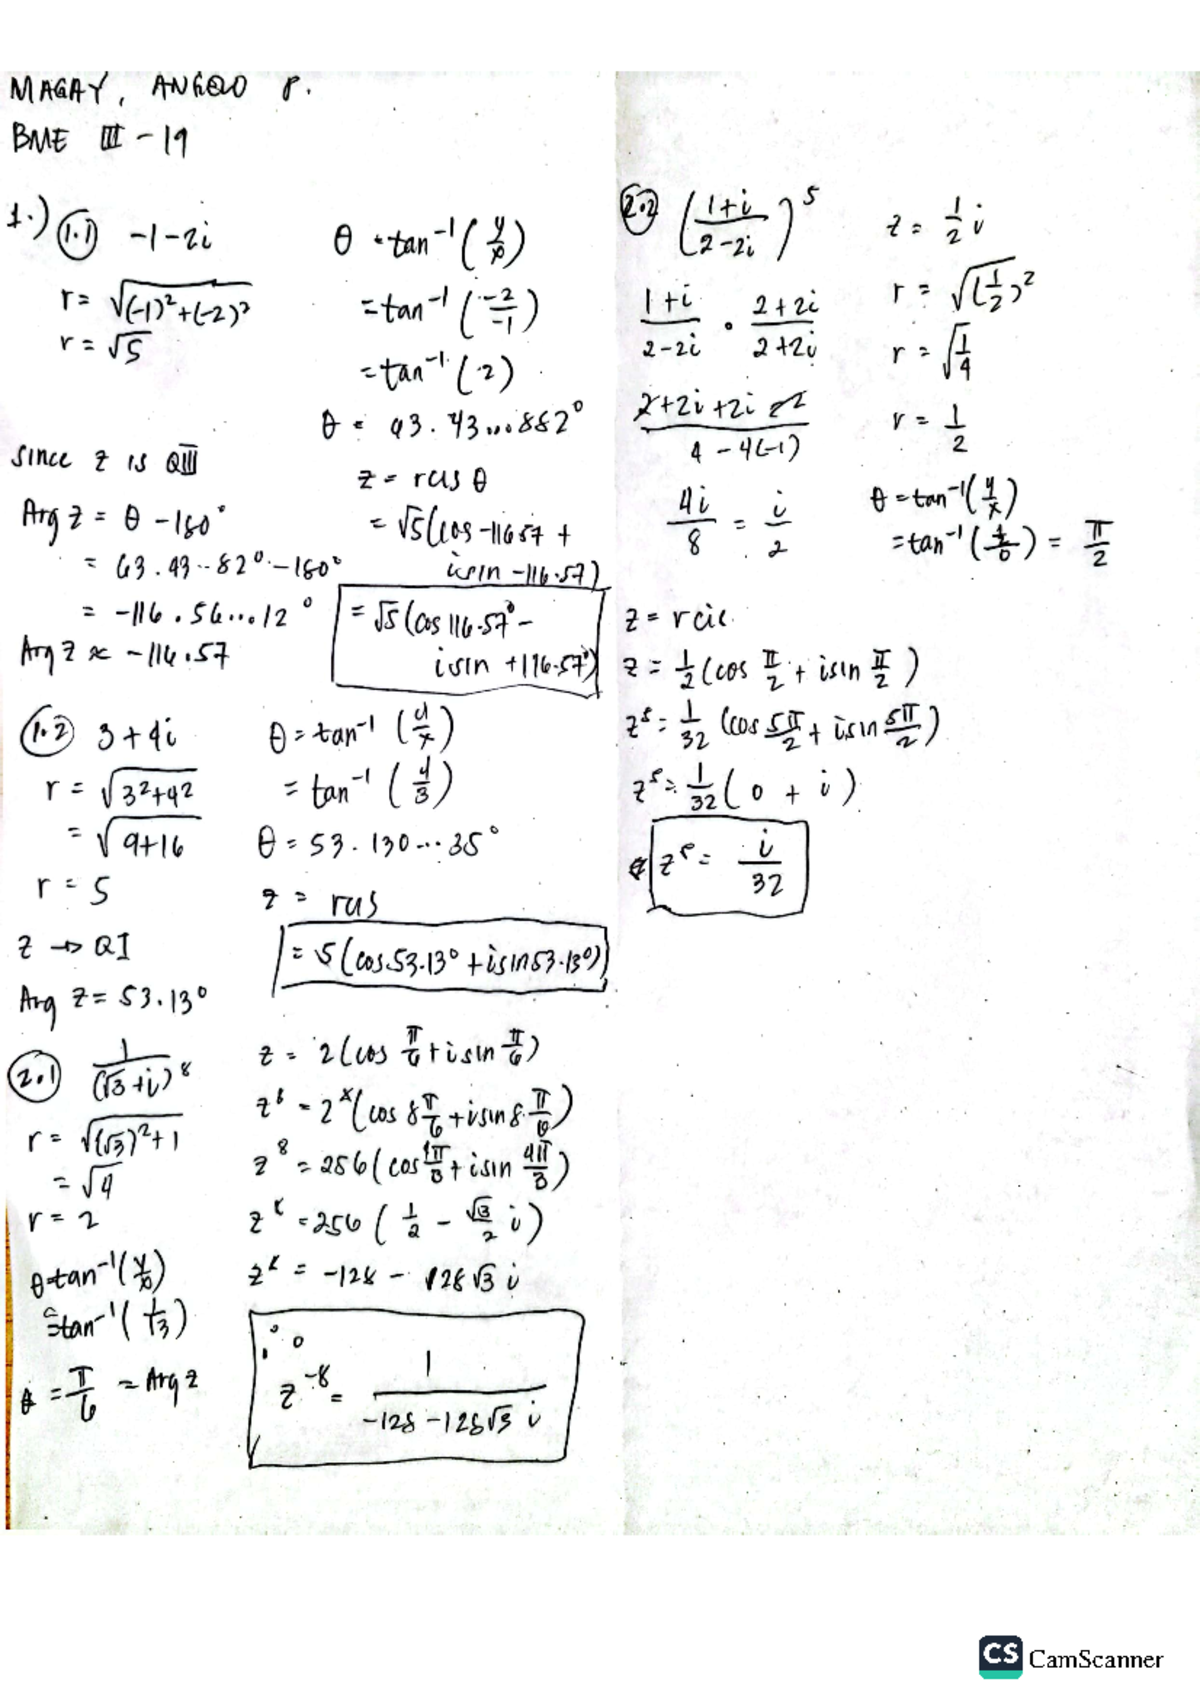 MAGAY, ANGELO P.
BME III - 19
1.) 1.1 -1-2i
r = √(-1)²+(-2)²
r = √5
θ = tan⁻¹(y/x)
= tan⁻¹(-2/-1)
= tan⁻¹(2)
θ = 63.43...882°
since z is QIII
Arg z = θ - 180°
= 63.43..82° - 180°
= -116.56...12°
Arg z ≈ -116.57
z = rcis θ
= √5(cos -116.57 +
isin -116.57)
= √5(cos 116.57° -
isin +116.57°)
1.2 3+4i
r = √3²+4²
= √9+16
r = 5
z → QI
Arg z = 53.13°
θ = tan⁻¹(y/x)
= tan⁻¹(4/3)
θ = 53.130...35°
z = rcis
= 5(cos 53.13° + isin 53.13°)
2.1 1/(√3+i)⁸
r = √(√3)²+1
= √4
r = 2
θ=tan⁻¹(y/x)
=tan⁻¹(1/√3)
θ = π/6 = Arg z
z = 2(cos π/6 + isin π/6)
z⁸ = 2⁸(cos 8π/6 + isin 8·π/6)
z⁸ = 256(cos 4π/3 + isin 4π/3)
z⁸ = 256(1/2 - √3/2 i)
z⁸ = -128 - 128√3 i
∴
z⁻⁸ = 1/(-128-128√3 i)
2.2 ((1+i)/(2-2i))⁵
(1+i)/(2-2i) · (2+2i)/(2+2i)
(2+2i+2i-2)/(4-4(-1))
4i/8 = i/2
z = 1/2 i
r = √(1/2)²
r = √1/4
r = 1/2
θ = tan⁻¹(y/x)
= tan⁻¹(1/0) = π/2
z = rcis
z = 1/2(cos π/2 + isin π/2)
z⁵ = 1/32(cos 5π/2 + isin 5π/2)
z⁵ = 1/32(0 + i)
z⁵ = i/32
CS CamScanner